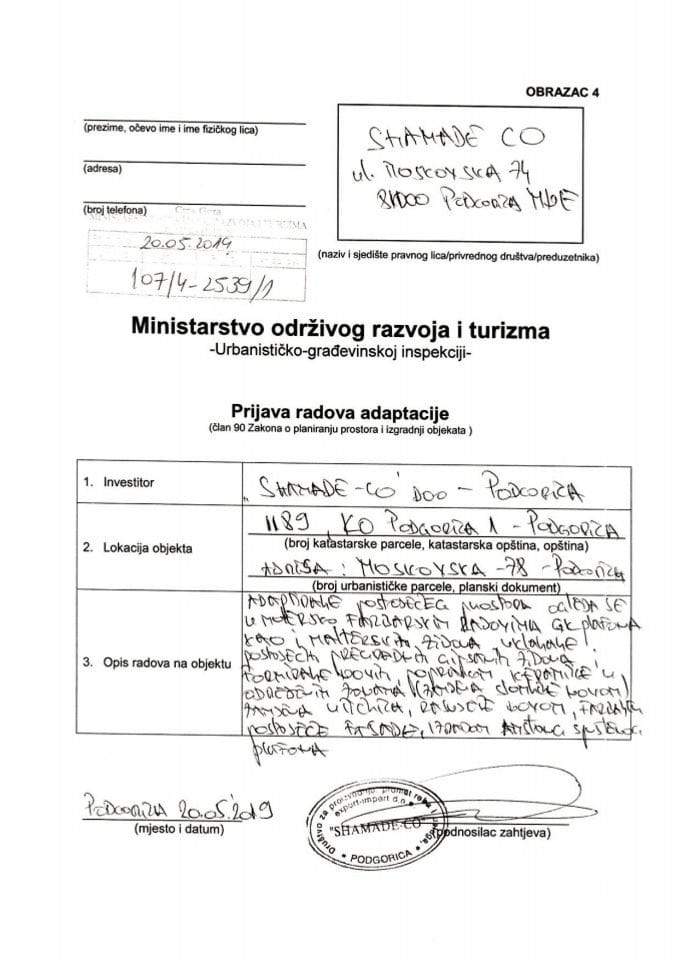 OBRAZAC 4
(prezime, očevo ime i ime fizičkog lica)
(adresa)
(broj telefona)
SHAMADE CO
ul. MOSKOVSKA 74
81000 PODGORICA MNE
(naziv i sjedište pravnog lica/privrednog društva/preduzetnika)
Crna Gora
RAZVOJA I TURIZMA
20.05.2019
107/4-2539/1
Ministarstvo održivog razvoja i turizma
-Urbanističko-građevinskoj inspekciji-
Prijava radova adaptacije
(član 90 Zakona o planiranju prostora i izgradnji objekata )
1. Investitor
SHAMADE-CO DOO - PODGORICA
2. Lokacija objekta
1189, KO PODGORICA 1 - PODGORICA
(broj katastarske parcele, katastarska opština, opština)
ADRESA: MOSKOVSKA -78 - PODGORICA
(broj urbanističke parcele, planski dokument)
3. Opis radova na objektu
ADAPTIRANJE POSTOJEĆEG PROSTORA OGLEDA SE
U MOLERSKO FARBARSKIM RADOVIMA GK PLAFONA
KAO I MALTERSKIH ZIDOVA UKLANJANJE
POSTOJEĆIH PREGRADNIH GIPSANIH ZIDOVA I
FORMIRANJE NOVIH, KERAMIKE U
ODREĐENIM ZONAMA (ZAMJENA NOVOM)
ZAMJENA RASVJETE NOVOM, FARBANJE
POSTOJEĆE FASADE, SPUŠTENOG
PLAFONA
PODGORICA 20.05.2019
(mjesto i datum)
Društvo za proizvodnju, promet robe i usluga,
export-import d.o.o.
"SHAMADE-CO"
PODGORICA
(podnosilac zahtjeva)